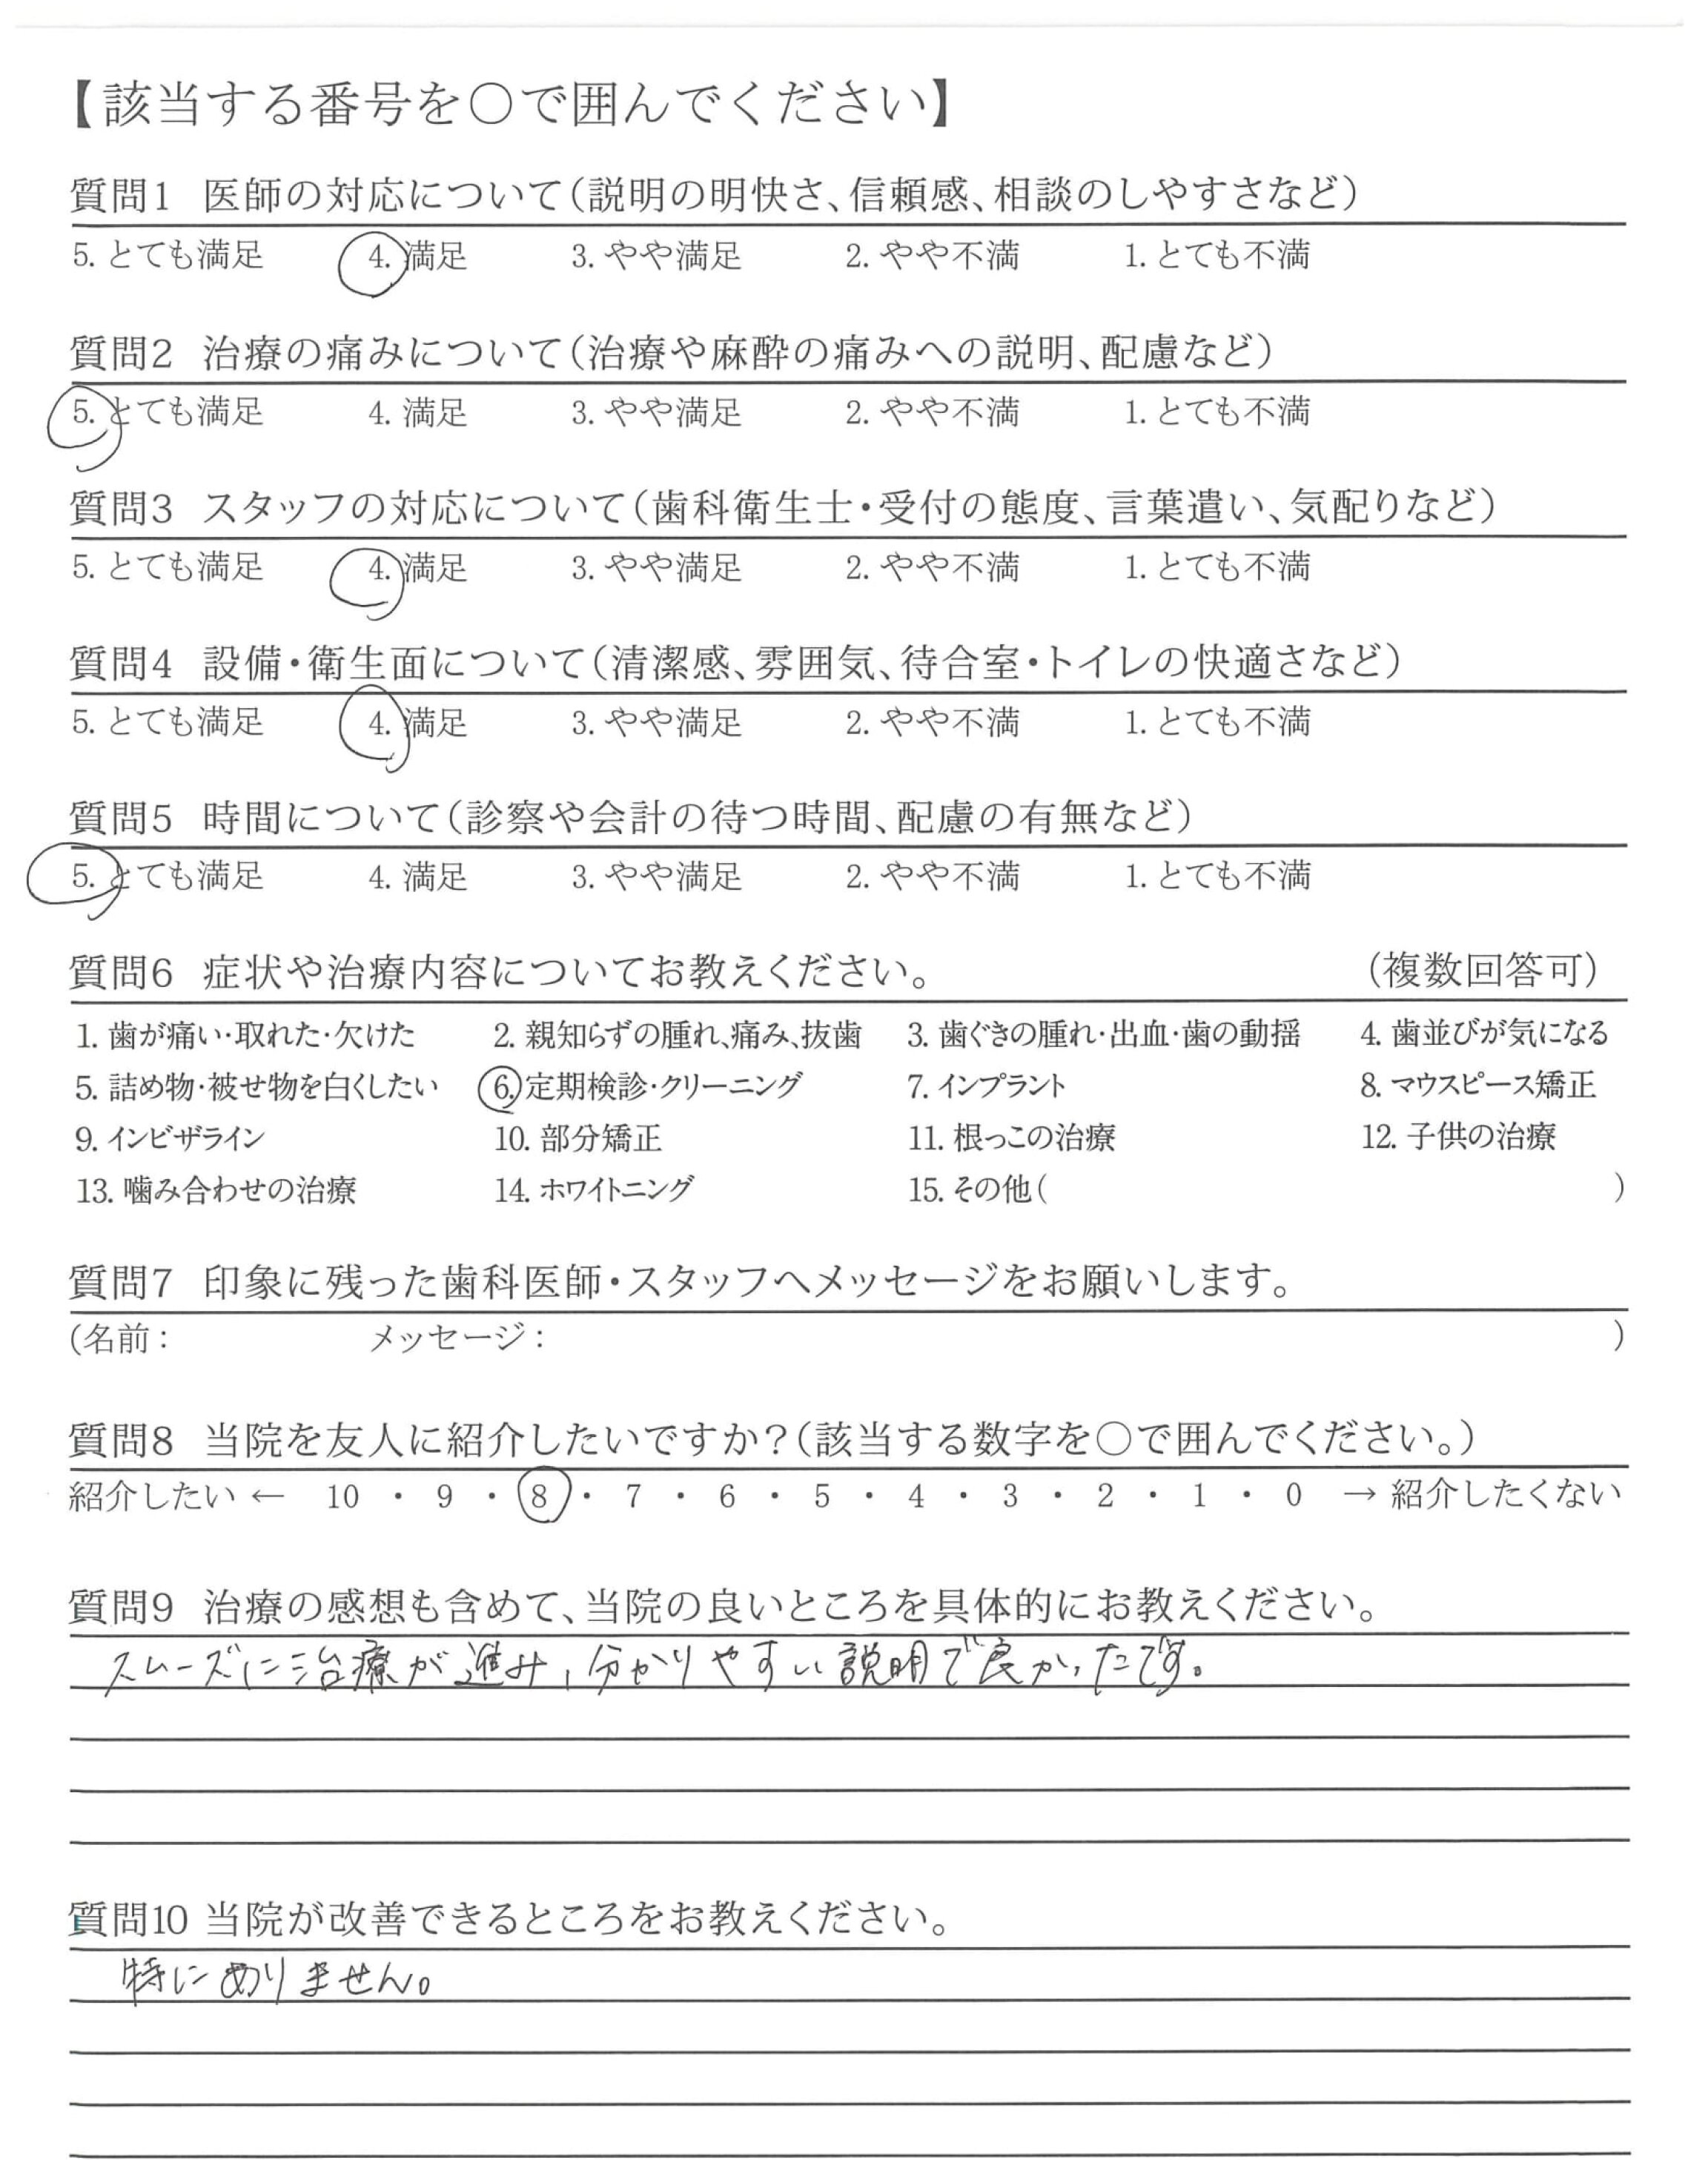 【該当する番号を○で囲んでください】
質問1 医師の対応について(説明の明快さ、信頼感、相談のしやすさなど)
5. とても満足 4. 満足 3. やや満足 2. やや不満 1. とても不満
質問2 治療の痛みについて(治療や麻酔の痛みへの説明、配慮など)
5. とても満足 4. 満足 3. やや満足 2. やや不満 1. とても不満
質問3 スタッフの対応について(歯科衛生士・受付の態度、言葉遣い、気配りなど)
5. とても満足 4. 満足 3. やや満足 2. やや不満 1. とても不満
質問4 設備・衛生面について(清潔感、雰囲気、待合室・トイレの快適さなど)
5. とても満足 4. 満足 3. やや満足 2. やや不満 1. とても不満
質問5 時間について(診察や会計の待つ時間、配慮の有無など)
5. とても満足 4. 満足 3. やや満足 2. やや不満 1. とても不満
質問6 症状や治療内容についてお教えください。 (複数回答可)
1. 歯が痛い・取れた・欠けた 2. 親知らずの腫れ、痛み、抜歯 3. 歯ぐきの腫れ・出血・歯の動揺 4. 歯並びが気になる
5. 詰め物・被せ物を白くしたい 6. 定期検診・クリーニング 7. インプラント 8. マウスピース矯正
9. インビザライン 10. 部分矯正 11. 根っこの治療 12. 子供の治療
13. 噛み合わせの治療 14. ホワイトニング 15. その他( )
質問7 印象に残った歯科医師・スタッフへメッセージをお願いします。
(名前: メッセージ: )
質問8 当院を友人に紹介したいですか?(該当する数字を○で囲んでください。)
紹介したい ← 10 ・ 9 ・ 8 ・ 7 ・ 6 ・ 5 ・ 4 ・ 3 ・ 2 ・ 1 ・ 0 → 紹介したくない
質問9 治療の感想も含めて、当院の良いところを具体的にお教えください。
スムーズに治療が進み、分かりやすい説明で良かったです。
質問10 当院が改善できるところをお教えください。
特にありません。